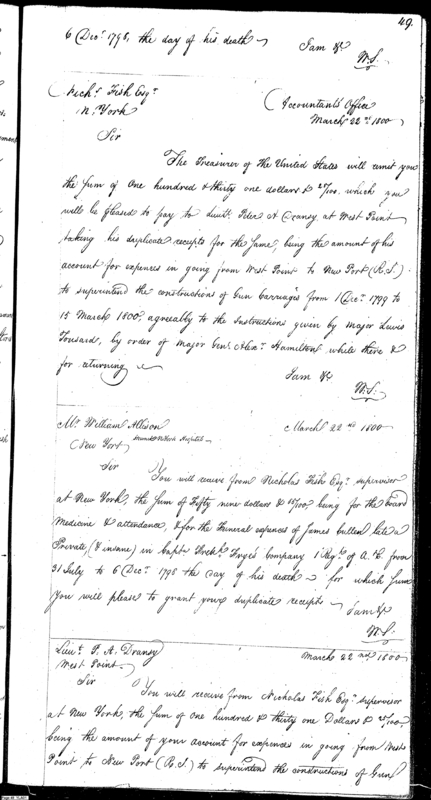 49.
6 Decr. 1798, the day of his death
I am &c
W.S.
Nichs. Fish Esqr.
N. York
Accountants Office
March 22nd. 1800
Sir
The Treasurer of the United States will remit you
the sum of One hundred & thirty one dollars & 27/100. which you
will be pleased to pay to Lieutt. Peter A Dransy, at West Point
taking his duplicate receipts for the same, being the amount of his
account for expences in going from West Point to New Port (R.I.)
to superintend the constructions of Gun Carriages from 1 Decr. 1799 to
15 March 1800, agreeably to the Instructions given by Major Lewis
Tousard, by order of Major Genl. Alexr. Hamilton, while there &
for returning
I am &c
W.S.
Mr. William Allison
New York
March 22nd 1800
Sir
You will receive from Nicholas Fish Esqr. supervisor
at New York, the sum of Fifty nine dollars & /100 being for the board
Medicine & attendance, & for the Funeral expences of James Cullen late a
Private, (& insane) in Capt. Fredk. Frye's Company 1 Regt. of A. & E. from
31 July to 6 Decr. 1798 the day of his death - for which sum
You will please to grant your duplicate receipts
I am &c
W.S.
Lieut. P. A. Dransy
West Point
March 22nd 1800
Sir
You will receive from Nicholas Fish Esqr. supervisor
at New York, the sum of one hundred & thirty one Dollars & 27/100
being the amount of your account for expences in going from West
Point to New Port (R.I.) to superintend the constructions of Gun